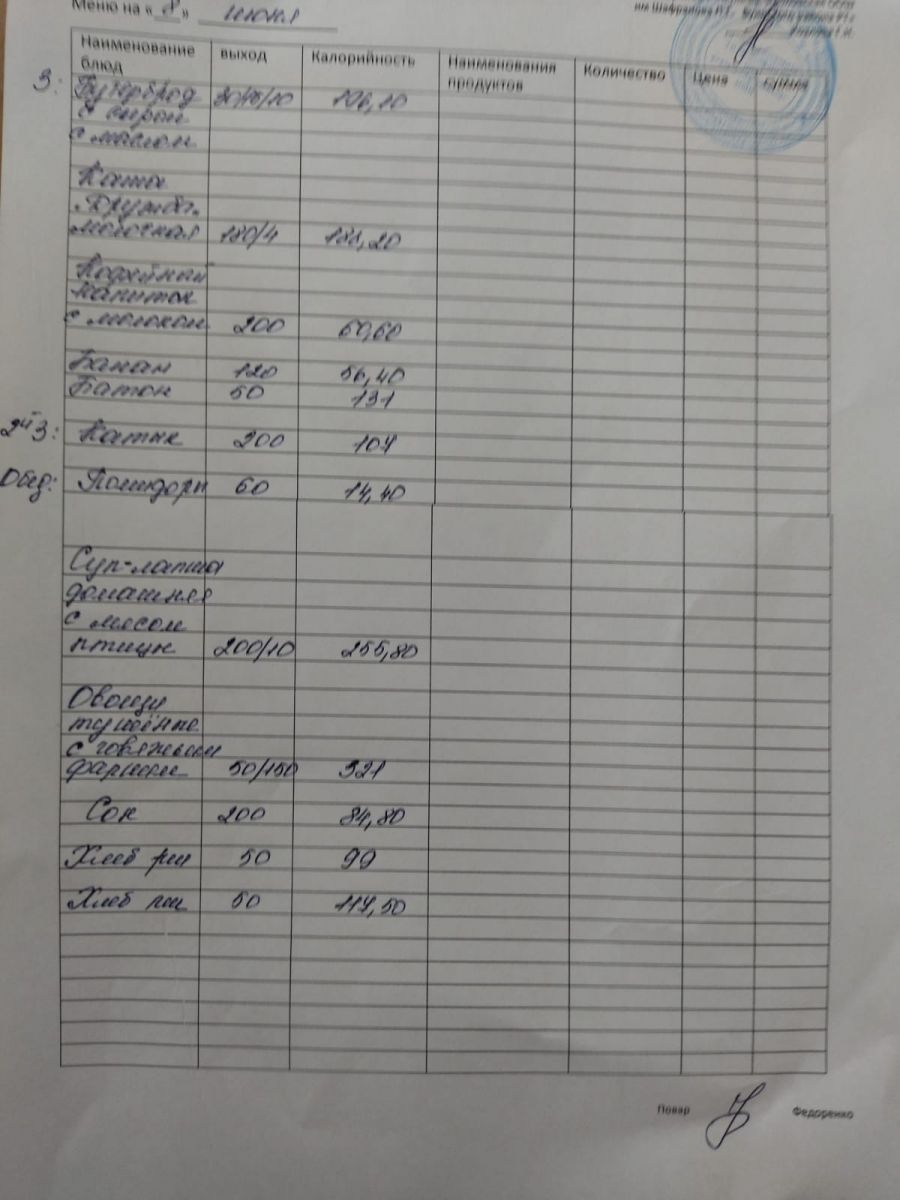 Меню на « 8 » июня
им Шафранова П.Е.
Наименование блюд выход Калорийность Наименования продуктов Количество Цена сумма
З: Бутерброд 106,10
с сыром
с маслом
Каша
Дружба
молочная 180/4
Кофейный
напиток
с молоком 200 60,60
Банан 120 56,40
Батон 50 131
2й З: Катык 200 107
Обед: Помидоры 60 14,40
Суп-лапша
домашняя
с мясом
птицы 200/10 255,80
Овощи
тушёные
с говяжьим
фаршем 50/150 321
Сок 200 84,80
Хлеб рж 50 99
Хлеб пш 50 117,50
Повар Федоренко